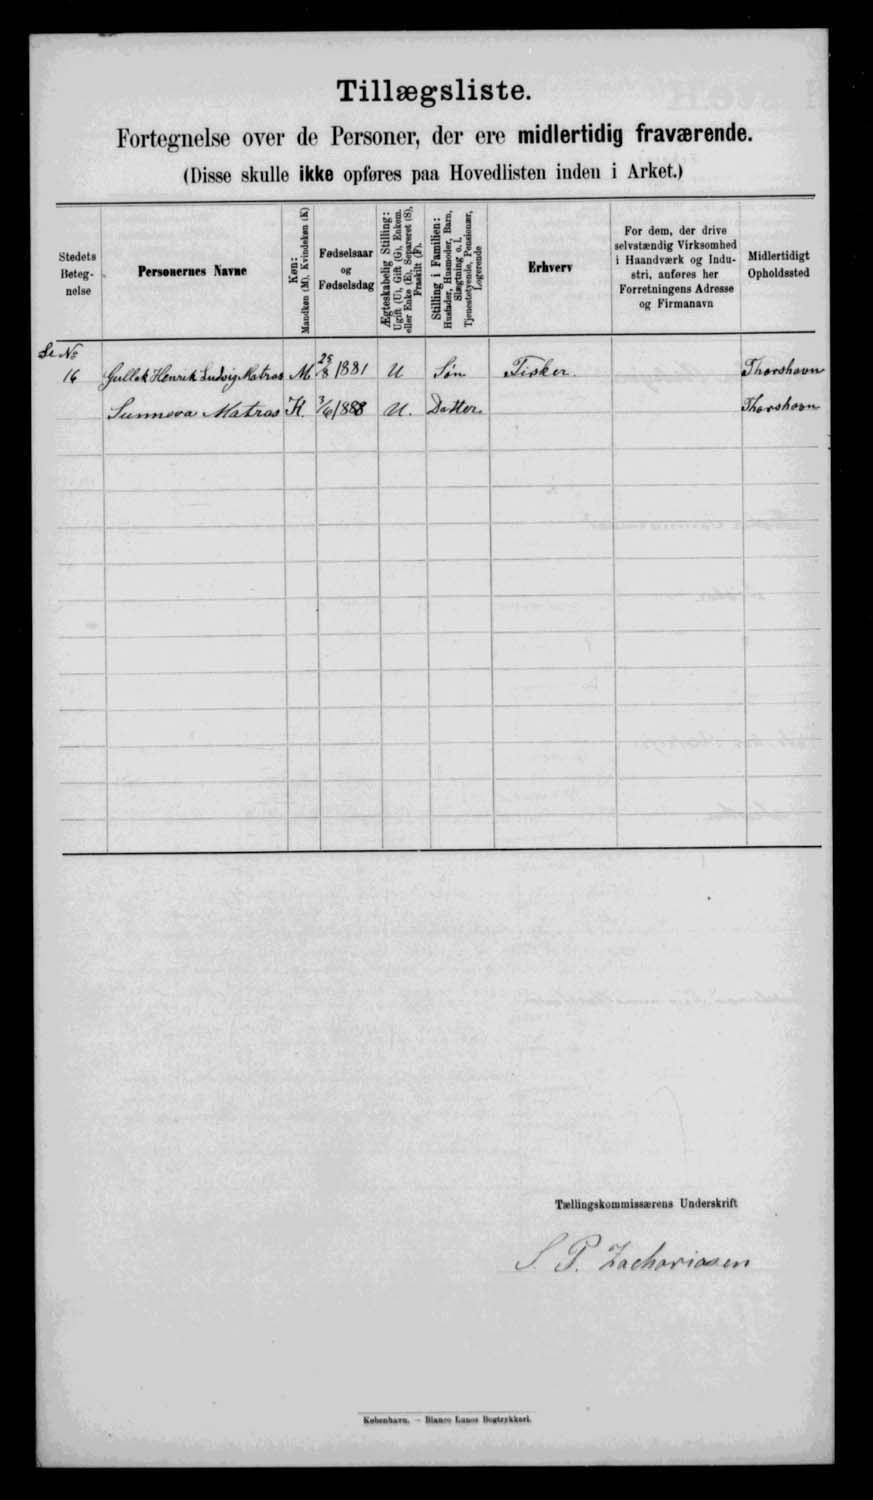 Tillægsliste.
Fortegnelse over de Personer, der ere midlertidig fraværende.
(Disse skulle ikke opføres paa Hovedlisten inden i Arket.)
Stedets Beteg-nelse
Personernes Navne
Køn:
Mandkøn (M), Kvindekøn (K)
Fødselsaar
og
Fødselsdag
Ægteskabelig Stilling:
Ugift (U), Gift (G), Enkem.
eller Enke (E), Separeret (S),
Fraskilt (F).
Stilling i Familien:
Husfader, Husmoder, Barn,
Slægtning o. l.
Tjenestetyende, Pensionær,
Logerende
Erhverv
For dem, der drive
selvstændig Virksomhed
i Haandværk og Indu-
stri, anføres her
Forretningens Adresse
og Firmanavn
Midlertidigt
Opholdssted
No
16 Gullak Henrik Ludvig Matras M 25/8 1881 U Søn Fisker. Thorshavn
Sunneva Matras K. 3/6 1888 U. Datter. Thorshavn
Tællingskommissærens Underskrift
S. P. Zachariasen
København. — Bianco Lunos Bogtrykkeri.